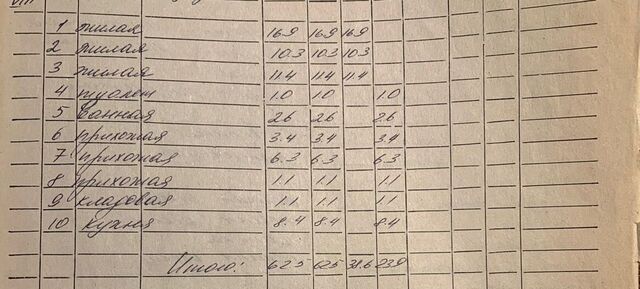 1 жилая 16.9 16.9 16.9
2 жилая 10.3 10.3 10.3
3 жилая 11.4 11.4 11.4
4 туалет 1.0 1.0 1.0
5 ванная 2.6 2.6 2.6
6 прихожая 3.4 3.4 3.4
7 прихожая 6.3 6.3 6.3
8 прихожая 1.1 1.1 1.1
9 кладовая 1.1 1.1 1.1
10 кухня 8.4 8.4 8.4
Итого: 62.5 62.5 38.6 23.9